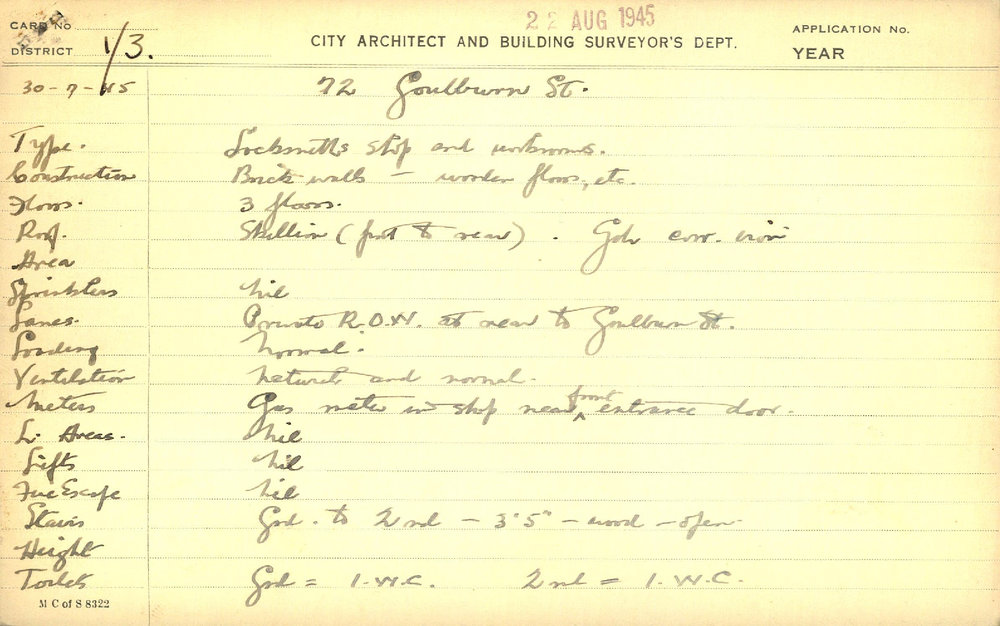 22 AUG 1945
CARD No
DISTRICT 1/3.
CITY ARCHITECT AND BUILDING SURVEYOR'S DEPT.
APPLICATION No.
YEAR
30-7-45 72 Goulburn St.
Type. Locksmiths shop and workrooms.
Construction Brick walls – wooden floors, etc.
Floors. 3 floors.
Roof. Skillion (front to rear). Galv corr. iron
Area
Sprinklers Nil
Lanes. Private R.O.W. at rear to Goulburn St.
Loading Normal.
Ventilation Natural and normal.
Meters Gas meter in shop near front entrance door.
L. Areas. Nil
Lifts Nil
Fire Escape Nil
Stairs Grd. to 2nd – 3'5" – wood – open
Height
Toilets Grd = 1.W.C. 2nd = 1.W.C.
M C of S 8322